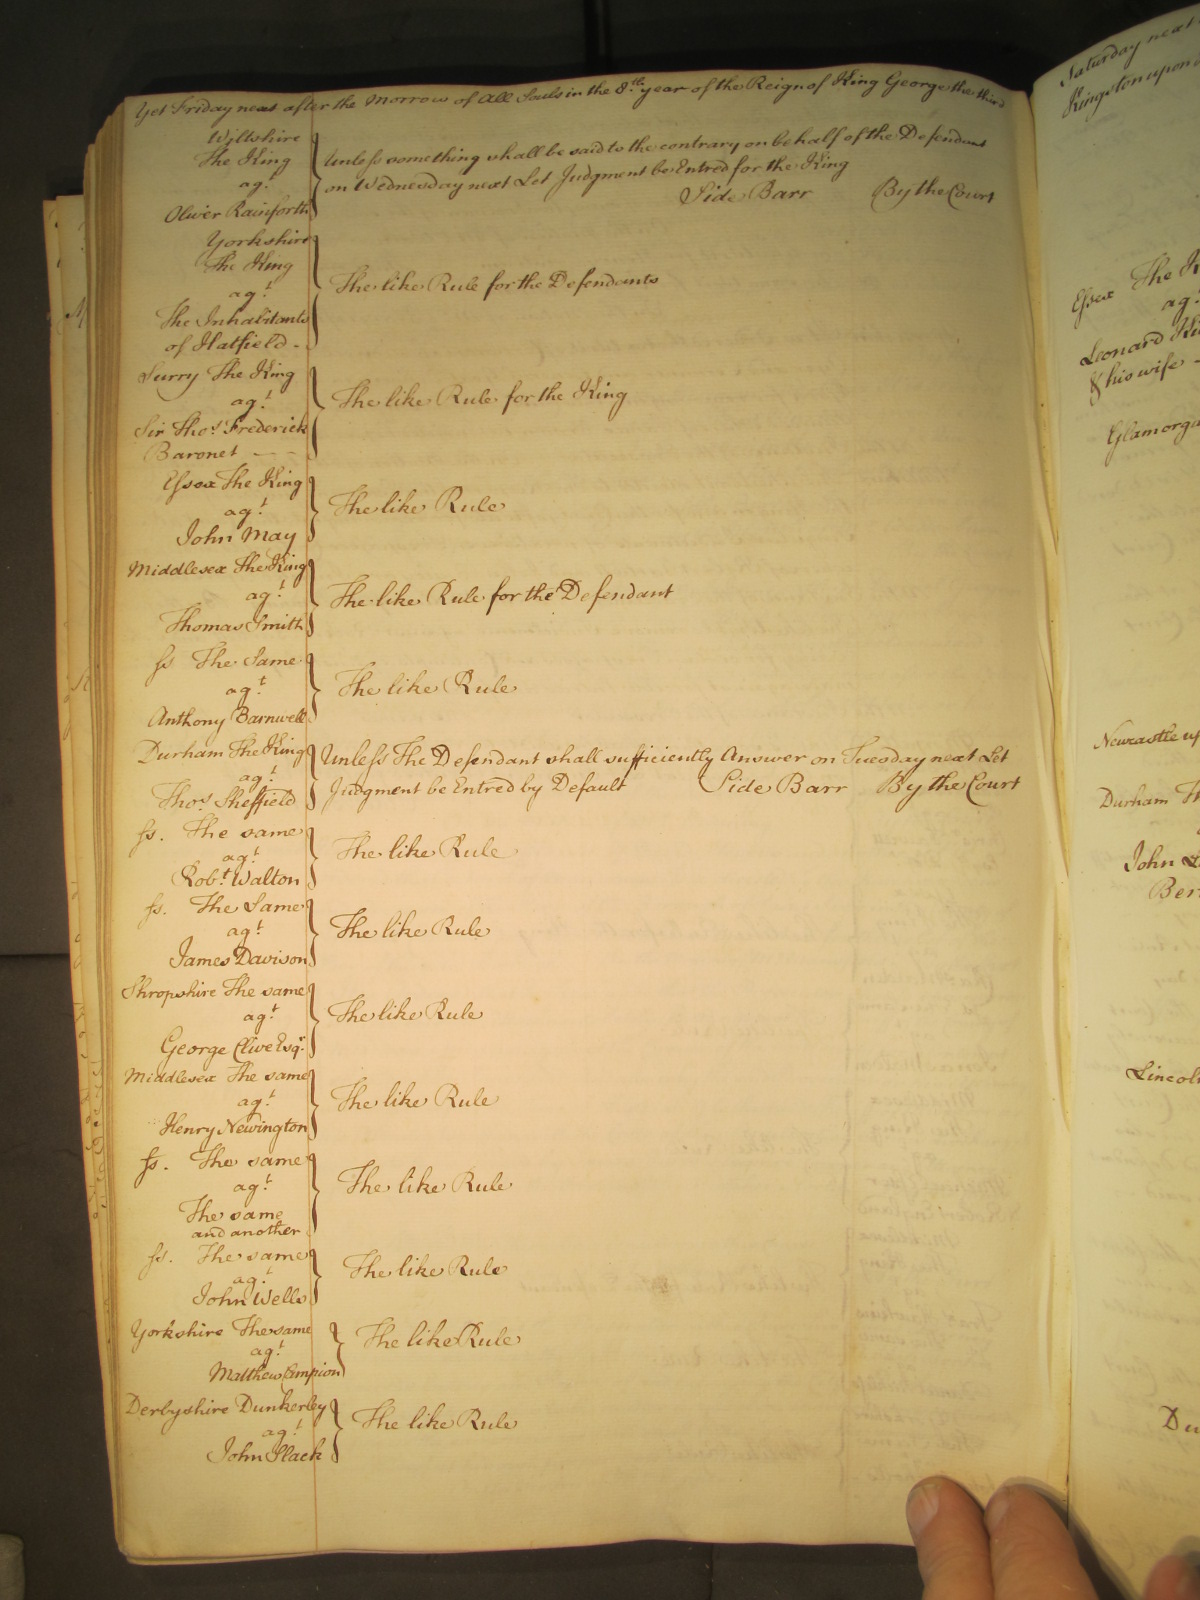 Yet Friday next after the Morrow of All Souls in the 8th. year of the Reign of King George the third
Wiltshire
The King
agt.
Oliver Rainforth
Unless something shall be said to the contrary on behalf of the Defendant
on Wednesday next Let Judgment be Entred for the King
Side Barr By the Court
Yorkshire
The King
agt.
The Inhabitants
of Hatfield -
The like Rule for the Defendants
Surry The King
agt.
Sir Thos. Frederick
Baronet - -
The like Rule for the King
Essex The King
agt.
John May
The like Rule
Middlesex The King
agt.
Thomas Smith
The like Rule for the Defendant
ss The Same
agt.
Anthony Barnwell
The like Rule
Durham The King
agt.
Thos. Sheffield
Unless The Defendant shall sufficiently Answer on Tuesday next Let
Judgment be Entred by Default Side Barr By the Court
ss. The same
agt.
Robt. Walton
The like Rule
ss. The Same
agt.
James Davison
The like Rule
Shropshire The same
agt.
George Clive Esqr.
The like Rule
Middlesex The same
agt.
Henry Newington
The like Rule
ss. The same
agt.
The same
and another
The like Rule
ss. The same
agt.
John Wells
The like Rule
Yorkshire The same
agt.
Matthew Campion
The like Rule
Derbyshire Dunkerley
agt.
John Slack
The like Rule
Saturday next
Kingston upon
Essex The K
agt.
Leonard
& his wife -
Glamorga
Newcastle up
Durham Th
John
Ber
Lincoln
Du